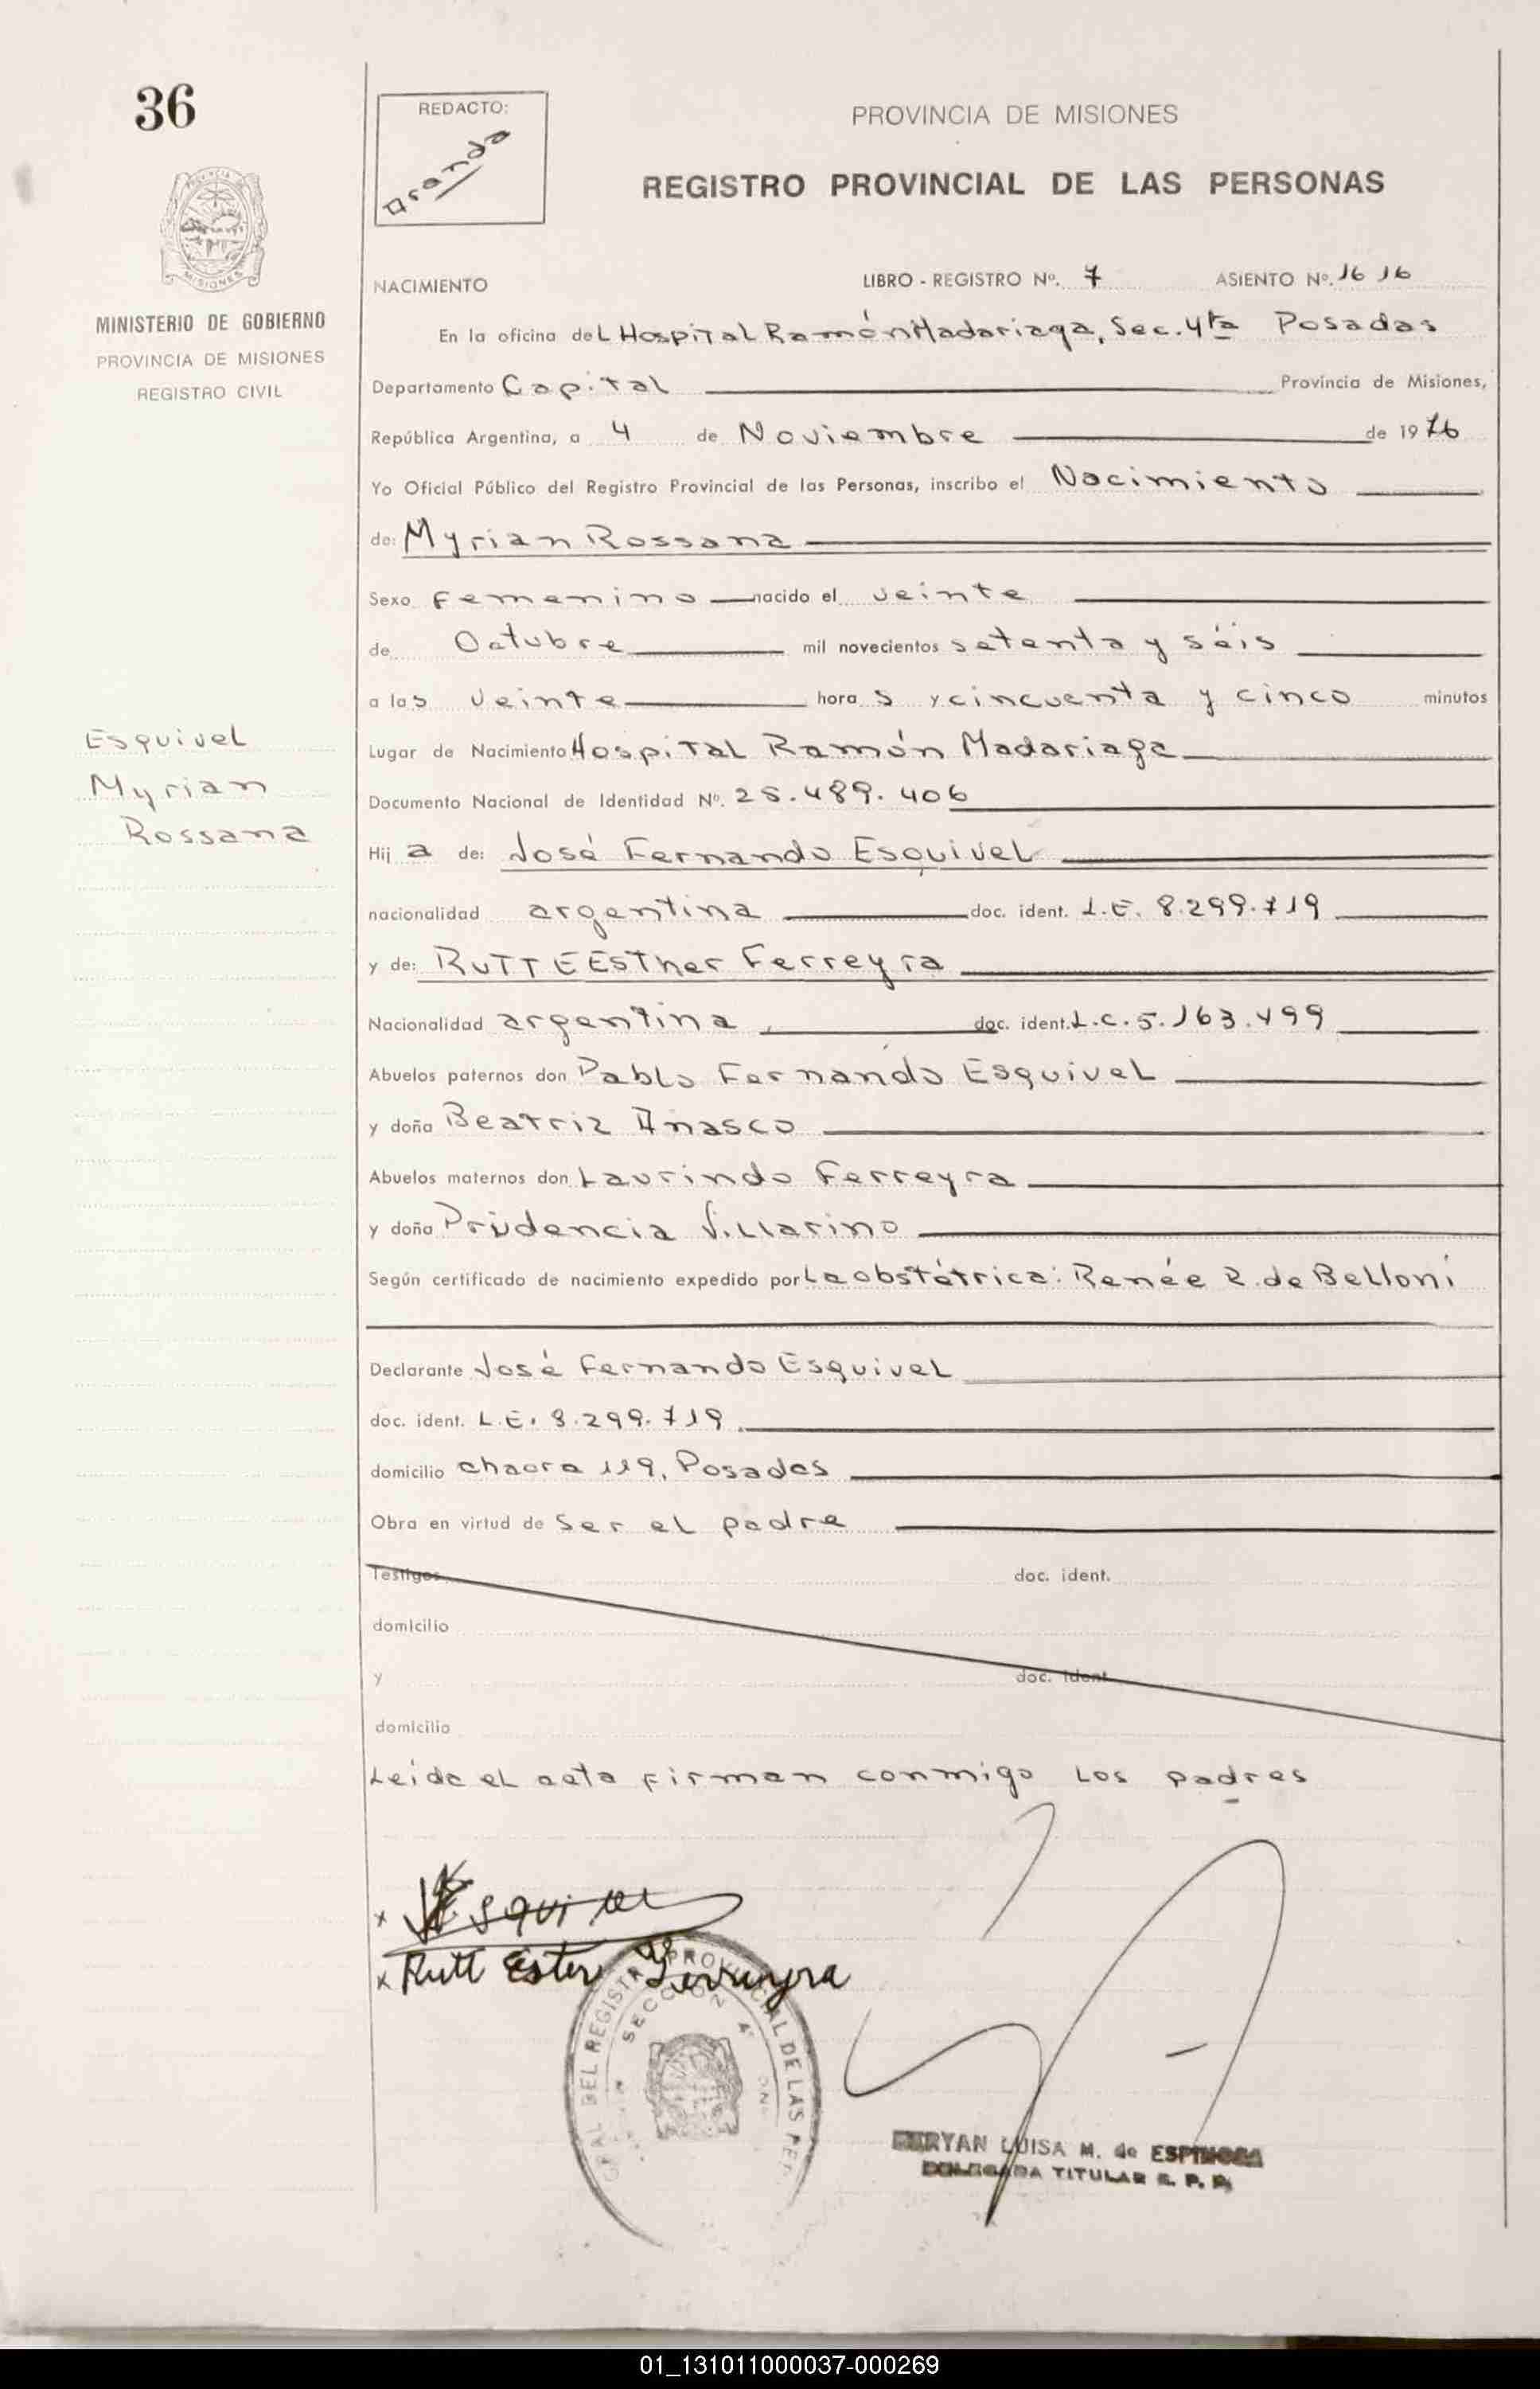 36
REDACTO:
Aranda
PROVINCIA DE MISIONES
REGISTRO PROVINCIAL DE LAS PERSONAS
MINISTERIO DE GOBIERNO
PROVINCIA DE MISIONES
REGISTRO CIVIL
NACIMIENTO LIBRO - REGISTRO Nº. 7 ASIENTO Nº. 1616
En la oficina del Hospital Ramón Madariaga, Sec. 4ta Posadas
Departamento Capital Provincia de Misiones,
República Argentina, a 4 de Noviembre de 1976
Yo Oficial Público del Registro Provincial de las Personas, inscribo el Nacimiento
de: Myrian Rossana
Sexo Femenino nacido el veinte
de Octubre mil novecientos setenta y séis
a las veinte hora s y cincuenta y cinco minutos
Esquivel
Myrian
Rossana
Lugar de Nacimiento Hospital Ramón Madariaga
Documento Nacional de Identidad Nº. 25.489.406
Hij a de: José Fernando Esquivel
nacionalidad argentina doc. ident. L.E. 8.299.719
y de: RUTTE Esther Ferreyra
Nacionalidad argentina, doc. ident. L.C. 5.163.499
Abuelos paternos don Pablo Fernando Esquivel
y doña Beatriz Anasco
Abuelos maternos don Laurindo Ferreyra
y doña Prudencia Villarino
Según certificado de nacimiento expedido por La obstétrica: Renée R. de Belloni
Declarante José Fernando Esquivel
doc. ident. L.E. 8.299.719
domicilio chacra 119, Posadas
Obra en virtud de ser el padre
Testigos doc. ident.
domicilio
y doc. ident.
domicilio
Leida el acta firman conmigo los padres
x Esquivel
x Rutt Ester Ferreyra
REGISTRO PROVINCIAL DE LAS PER
SECCION 4
LUISA M. de ESPINOSA
TITULAR R. P. P.
01_131011000037-000269